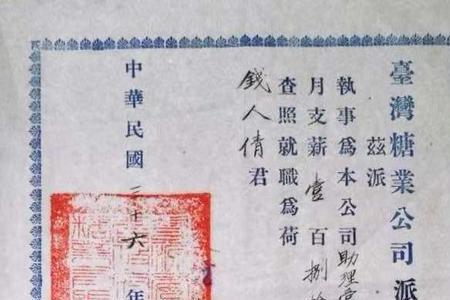 臺灣糖業公司派
茲派
執事為本公司助理
月支薪壹百捌
查照就職為荷
錢人倩君
中華民國三十六年